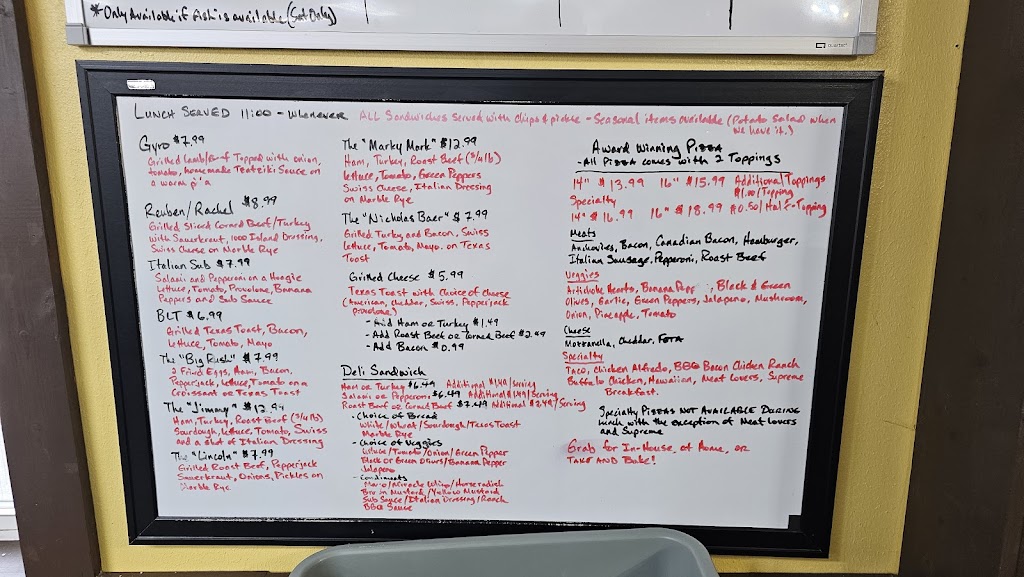 *Only Available if Ash is available (Sat Only)
quartet
Lunch Served 11:00 - Whenever All Sandwiches Served with chips & pickle - Seasonal items available (Potato Salad when
we have it.)
Gyro $7.99
Grilled Lamb/Beef Topped with onion,
tomato, homemade Teatziki Sauce on
a warm
Reuben/Rachel $8.99
Grilled Sliced Corned Beef/Turkey
With Sauerkraut, 1000 Island Dressing,
Swiss Cheese on Marble Rye
Italian Sub $7.99
Salami and Pepperoni on a Hoagie
Lettuce, Tomato, Provolone, Banana
Peppers and Sub Sauce
BLT $6.99
Grilled Texas Toast, Bacon,
Lettuce, Tomato, Mayo
The "Big Rush" $7.99
2 Fried Eggs, Ham, Bacon,
Pepperjack, Lettuce, Tomato on a
Croissant or Texas Toast
The "Jimmy" $12.99
Ham, Turkey, Roast Beef (3/4 lb)
Sourdough, Lettuce, Tomato, Swiss
and a shot of Italian Dressing
The "Lincoln" $7.99
Grilled Roast Beef, Pepperjack
Sauerkraut, Onions, Pickles on
Marble Rye
The "Marky Mark" $12.99
Ham, Turkey, Roast Beef (3/4 lb)
Lettuce, Tomato, Green Peppers
Swiss Cheese, Italian Dressing
on Marble Rye
The "Nicholas Baer" $7.99
Grilled Turkey and Bacon, Swiss
Lettuce, Tomato, Mayo. on Texas
Toast
Grilled Cheese $5.99
Texas Toast with Choice of Cheese
(American, Cheddar, Swiss, Pepperjack
Provolone.)
- Add Ham or Turkey $1.49
- Add Roast Beef or Corned Beef $2.49
- Add Bacon $0.99
Deli Sandwich
Ham or Turkey $6.49 Additional $1.49/Serving
Salami or Pepperoni $6.49 Additional $1.49/Serving
Roast Beef or Corned Beef $7.49 Additional $2.49/Serving
- Choice of Bread
White/Wheat/Sourdough/Texas Toast
Marble Rye
- Choice of Veggies
Lettuce/Tomato/Onion/Green Pepper
Black or Green Olives/Banana Pepper
Jalapeno
- Condiments
Mayo/Miracle Whip/Horseradish
Brown Mustard/Yellow Mustard
Sub Sauce/Italian Dressing/Ranch
BBQ Sauce
Award Winning Pizza
- All Pizza comes with 2 Toppings
14" $13.99 16" $15.99 Additional Toppings
$1.00/Topping
Specialty
14" $16.99 16" $18.99 $0.50/Half-Topping
Meats
Anchovies, Bacon, Canadian Bacon, Hamburger,
Italian Sausage, Pepperoni, Roast Beef
Veggies
Artichoke Hearts, Banana Black & Green
Olives, Garlic, Green Peppers, Jalapeno, Mushroom,
Onion, Pineapple, Tomato
Cheese
Mozzarella, Cheddar, Feta
Specialty
Taco, Chicken Alfredo, BBQ Bacon Chicken Ranch
Buffalo Chicken, Hawaiian, Meat Lovers, Supreme
Breakfast.
Specialty Pizzas NOT AVAILABLE DURING
lunch with the exception of Meat Lovers
and Supreme
Grab for In-House, at Home, or
Take and Bake!